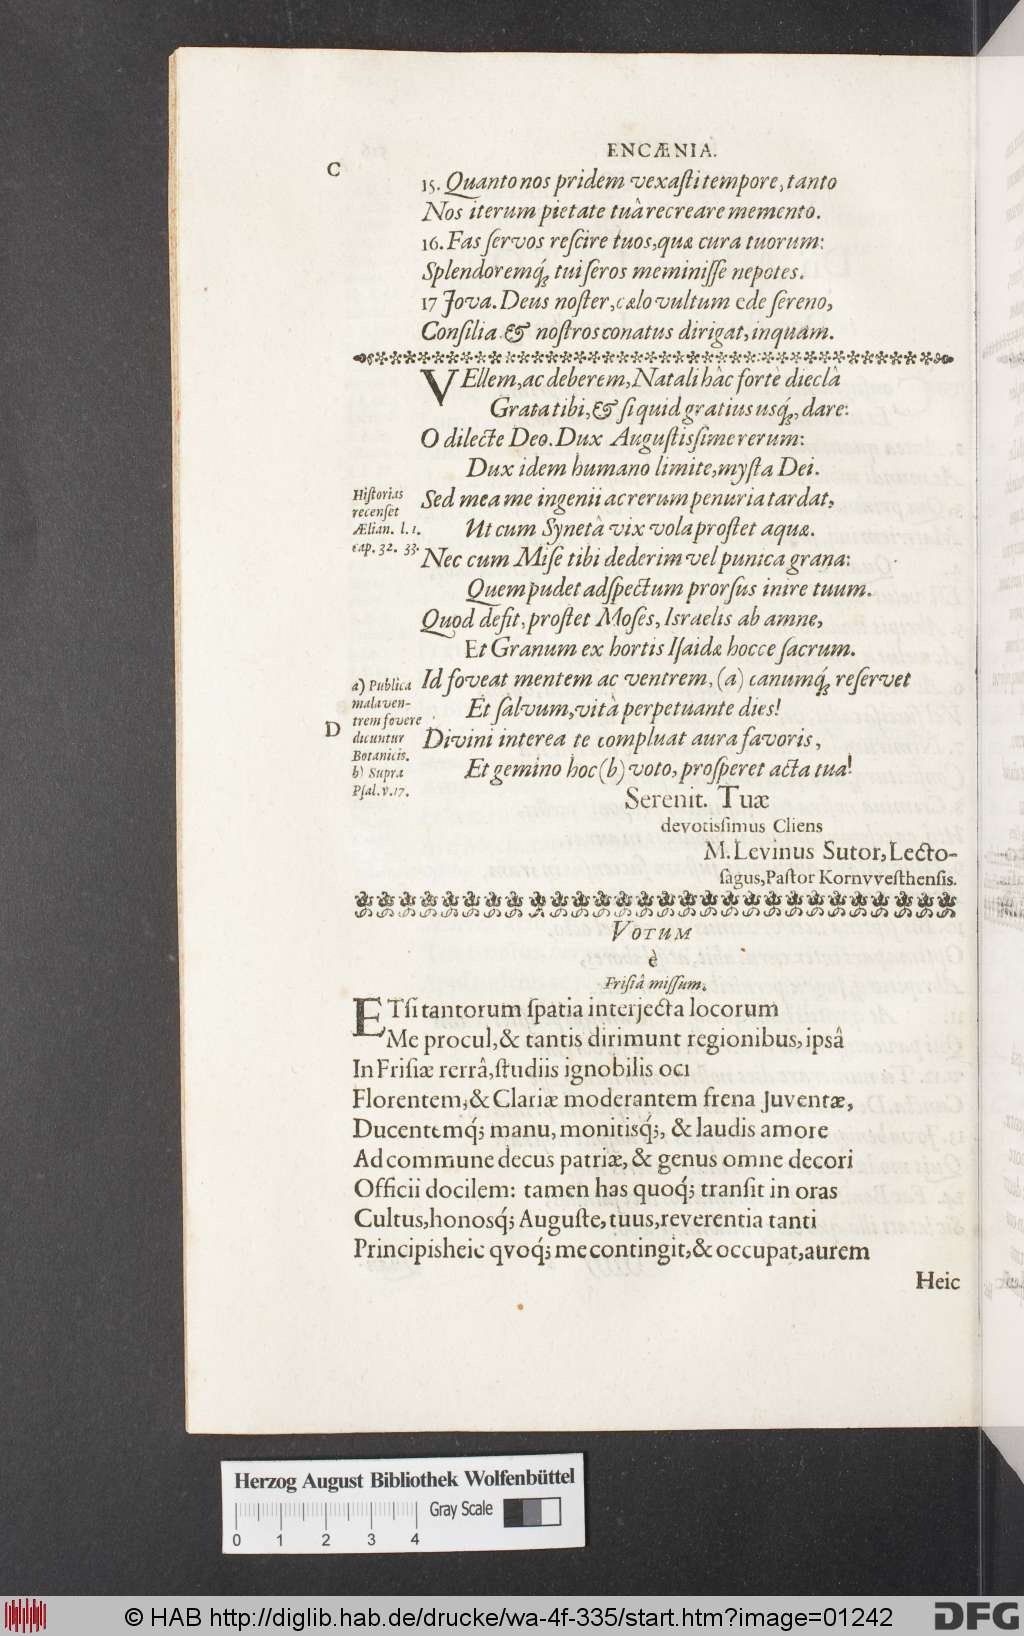 ENCÆNIA.
C
15. Quanto nos pridem vexaſti tempore, tanto
Nos iterum pietate tuâ recreare memento.
16. Fas ſervos reſcire tuos, quæ cura tuorum:
Splendoremq́; tui ſeros meminiſſe nepotes.
17 Jova. Deus noſter, cælo vultum ede ſereno,
Conſilia & noſtros conatus dirigat, inquam.
VEllem, ac deberem, Natali hâc fortè dieclâ
Grata tibi, & ſi quid gratius usq́;, dare:
O dilecte Deo. Dux Auguſtisſime rerum:
Dux idem humano limite, myſta Dei.
Hiſtorias
recenſet
Ælian. l. 1.
cap. 32. 33.
Sed mea me ingenii ac rerum penuria tardat,
Ut cum Synetâ vix vola proſtet aquæ.
Nec cum Miſe tibi dederim vel punica grana:
Quem pudet adſpectum prorſus inire tuum.
Quod deſit, proſtet Moſes, Israelis ab amne,
Et Granum ex hortis Iſaidæ hocce ſacrum.
a) Publica
mala ven-
trem fovere
dicuntur
Botanicis.
b) Supra
Pſal. v. 17.
D
Id foveat mentem ac ventrem, (a) canumq́; reſervet
Et ſalvum, vità perpetuante dies!
Divini interea te compluat aura favoris,
Et gemino hoc (b) voto, proſperet acta tua!
Serenit. Tuæ
devotisſimus Cliens
M. Levinus Sutor, Lecto-
ſagus, Paſtor Kornvveſthenſis.
VOTUM
è
Friſiâ miſſum.
ETſi tantorum ſpatia interjecta locorum
Me procul, & tantis dirimunt regionibus, ipsâ
In Friſiæ rerrâ, ſtudiis ignobilis oci
Florentem, & Clariæ moderantem frena Juventæ,
Ducentemq́; manu, monitisq́;, & laudis amore
Ad commune decus patriæ, & genus omne decori
Officii docilem: tamen has quoq́; tranſit in oras
Cultus, honosq́; Auguſte, tuus, reverentia tanti
Principis heic qvoq́; me contingit, & occupat, aurem
Heic
Herzog August Bibliothek Wolfenbüttel
Gray Scale
0 1 2 3 4
© HAB http://diglib.hab.de/drucke/wa-4f-335/start.htm?image=01242
DFG